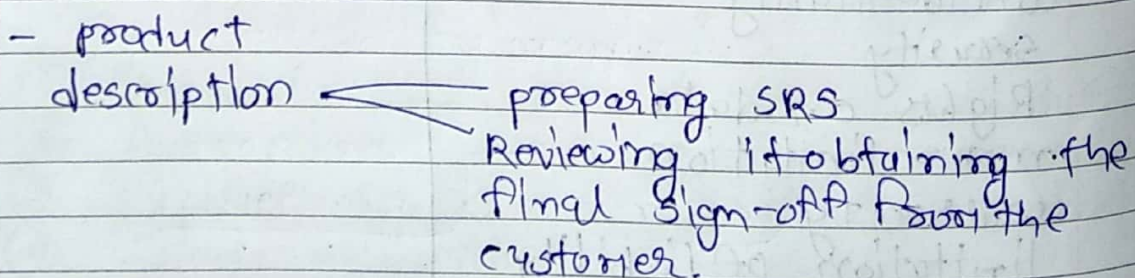 - product
description
preparing SRS
Reviewing it obtaining the
final sign-off from the
customer.